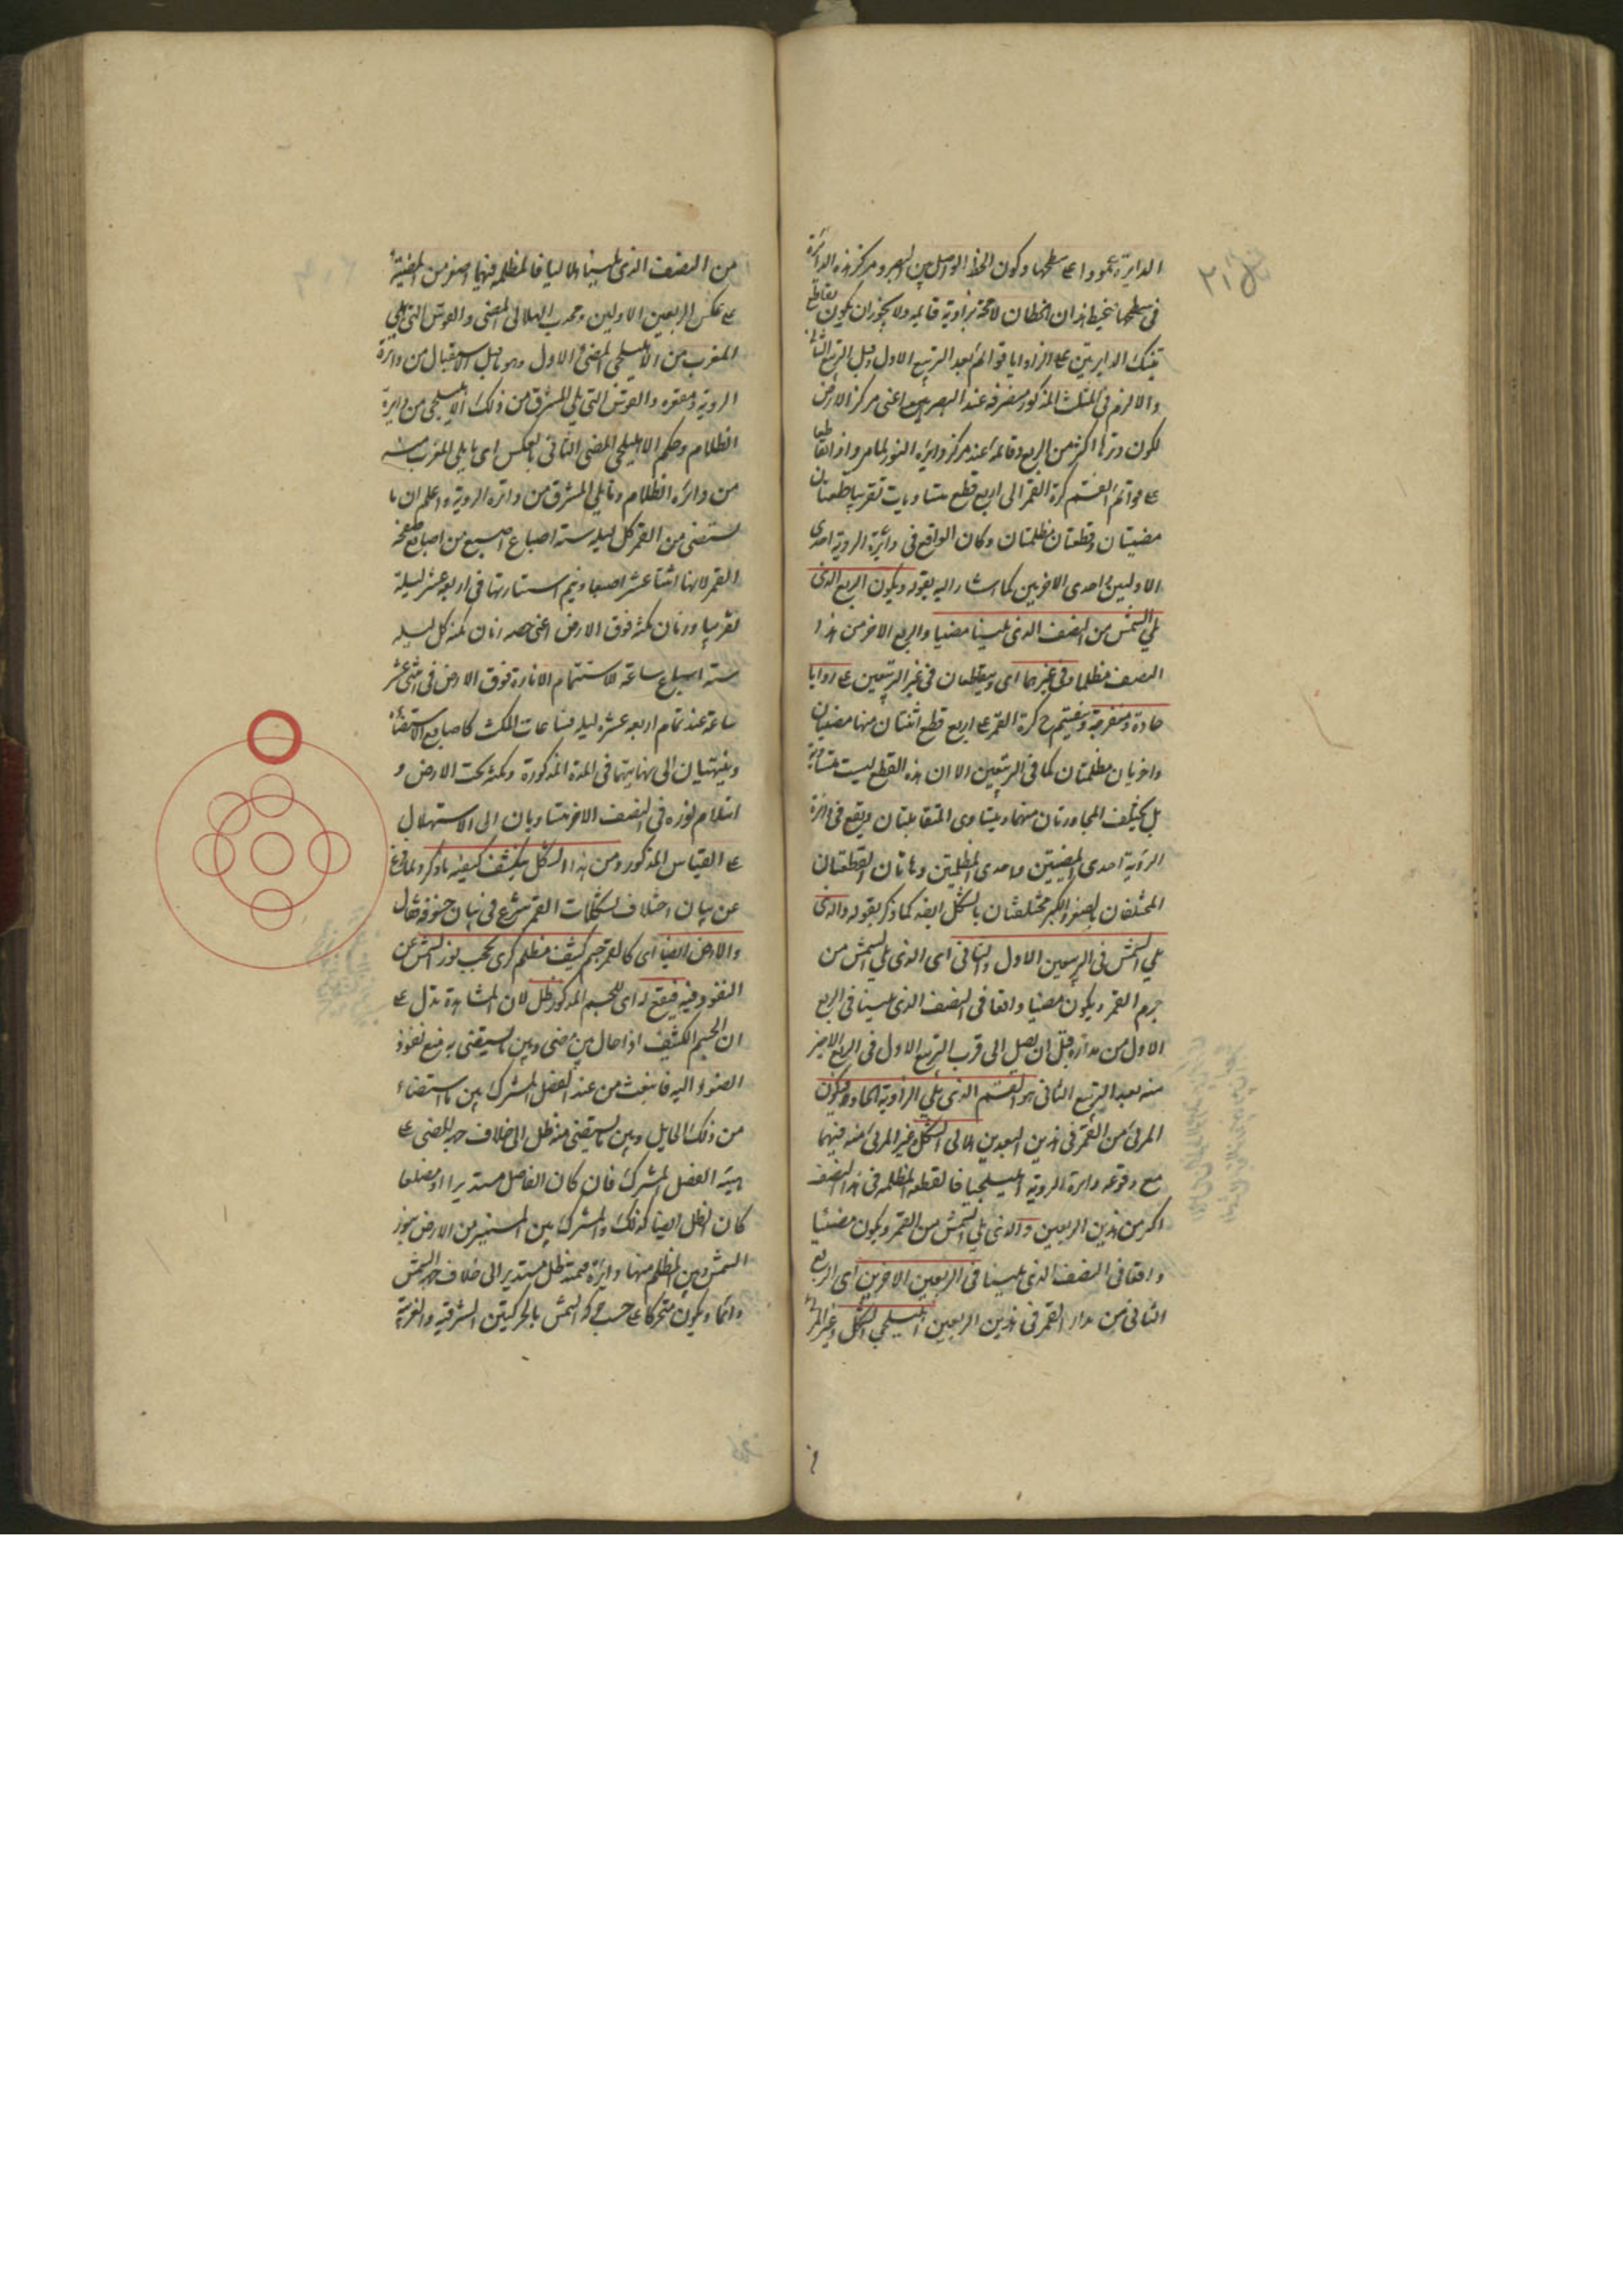 الدايرة عمودا على سطحها وكون الخط الواصل بين البصر ومركز هذه الدائرة
في سطحها فيحيط هذان الخطان لا محة بزاوية قايمة ولا يجوز ان يكون تقاطع
تينك الدايرتين على الزوايا قوائم بعد التربيع الاول وقبل التربيع الثاني
والا لزم في المثلث المذكور منفرجة عند البصر اعنى مركز الارض
لكون وترها اكثر من الربع وقائمة عند مركز دايرة النور لما مر واذا تقاطعا
على قوائم انقسم كرة القمر الى اربع قطع متساويات تقريبا قطعتان
مضيئتان وقطعتان مظلمتان وكان الواقع في دايرة الروية احدى
الاوليين واحدى الاخريين كما اشار اليه بقوله ويكون الربع الذى
يلي الشمس من النصف الذى يلينا مضيا والربع الاخر من هذا
النصف مظلما وفي غيرهما اى ويتقاطعان في غير التربيعين على زوايا
حادة ومنفرجة وينقسم ح كرة القمر على اربع قطع اثنتان منها مضيئتان
واخريان مظلمتان كما في التربيعين الا ان هذه القطع ليست متساوية
بل يختلف المجاورتان منهما ويتساوى المتقابلتان ويقع في دائرة
الروية احدى المضيئتين واحدى المظلمتين وهاتان القطعتان
المختلفتان بالصغر والكبر مختلفتان بالشكل ايضه كما ذكر بقوله والذى
يلي الشمس في الربعين الاول والثاني اى الذى يلي الشمس من
جرم القمر ويكون مضيا واقعا في النصف الذى يلينا في الربع
الاول من مداره قبل ان يصل الى قرب التربيع الاول في الربع الاخير
منه بعد التربيع الثاني هو القسم الذى يلي الزاوية الحادة فيكون
المرئ من القمر في هذين البعدين هلالى الشكل وغير المرئ منه فيهما
مع وقوعه دايرة الروية اهليلجيا فالقطعة المظلمة في هذا النصف
اكبر من هذين الربعين والذى يلي الشمس من القمر ويكون مضيئا
واقعا في النصف الذى يلينا في الربعين الاخرين اى الربع
الثانى من مدار القمر في هذين الربعين اهليلجي الشكل وغير المرئ
من النصف الذى يلينا هلاليا فالمظلمة فيهما اصغر من المضيئة
على عكس الربعين الاولين ومحدب الهلالى المضئ والقوس التى تلي
المغرب من الاهليلجي المضئ الاول وهو ما قبل الاستقبال من دائرة
الروية ومقعره والقوس التى تلي المشرق من ذلك الاهليلجي من دايرة
الظلام وحكم الاهليلجي المضئ الثانى بالعكس اى ما يلي المغرب منه
من دائرة الظلام وما يلي المشرق من دائرة الروية واعلم ان ما
يستضئ من القمر كل ليلة ستة اسباع اصبع من اصابع صفحة
القمر لانها اثنتا عشر اصبعا ويتم استنارتها في اربع عشر ليلة
تقريبا وزمان مكثه فوق الارض اعنى حصه زمان مكثه كل ليله
ستة اسباع ساعة لاستتمام الانارة فوق الارض في اثنى عشر
ساعة عند تمام اربعة عشره ليلة فساعات المكث كاصابع الاستضاءة
وينتهيان الى نهايتهما في المدة المذكورة ومكثه تحت الارض و
انثلام نوره في النصف الاخر متساويان الى الاستهلال
على القياس المذكور ومن هذا الشكل ينكشف كيفية ما ذكر ولما فرغ
عن بيان اختلاف تشكلات القمر شرع في بيان خسوفه فقال
والارض ايضا اى كالقمر جسم كثيف مظلم كرى يحجب نور الشمس عن
النفوذ فيه فيقع له اى للجسم المذكور ظل لان المشاهدة تدل على
ان الجسم الكثيف اذا حال بين مضئ وبين ما يستضئ به منع نفوذ
الضوء اليه فانبعث من عند الفصل المشترك بين ما استضاء
من ذلك الحايل وبين ما يستضئ منه ظل الى خلاف جهة المضئ على
هيئة الفصل المشترك فان كان الفاصل مستديرا او مضلعا
كان الظل ايضا كذلك والمشترك بين المستنير من الارض بنور
الشمس وبين المظلم منها دايرة فيمتد ظل مستدير الى خلاف جهة الشمس
دائما ويكون متحركا على حسب حركة الشمس بالحركتين الشرقية والغربية